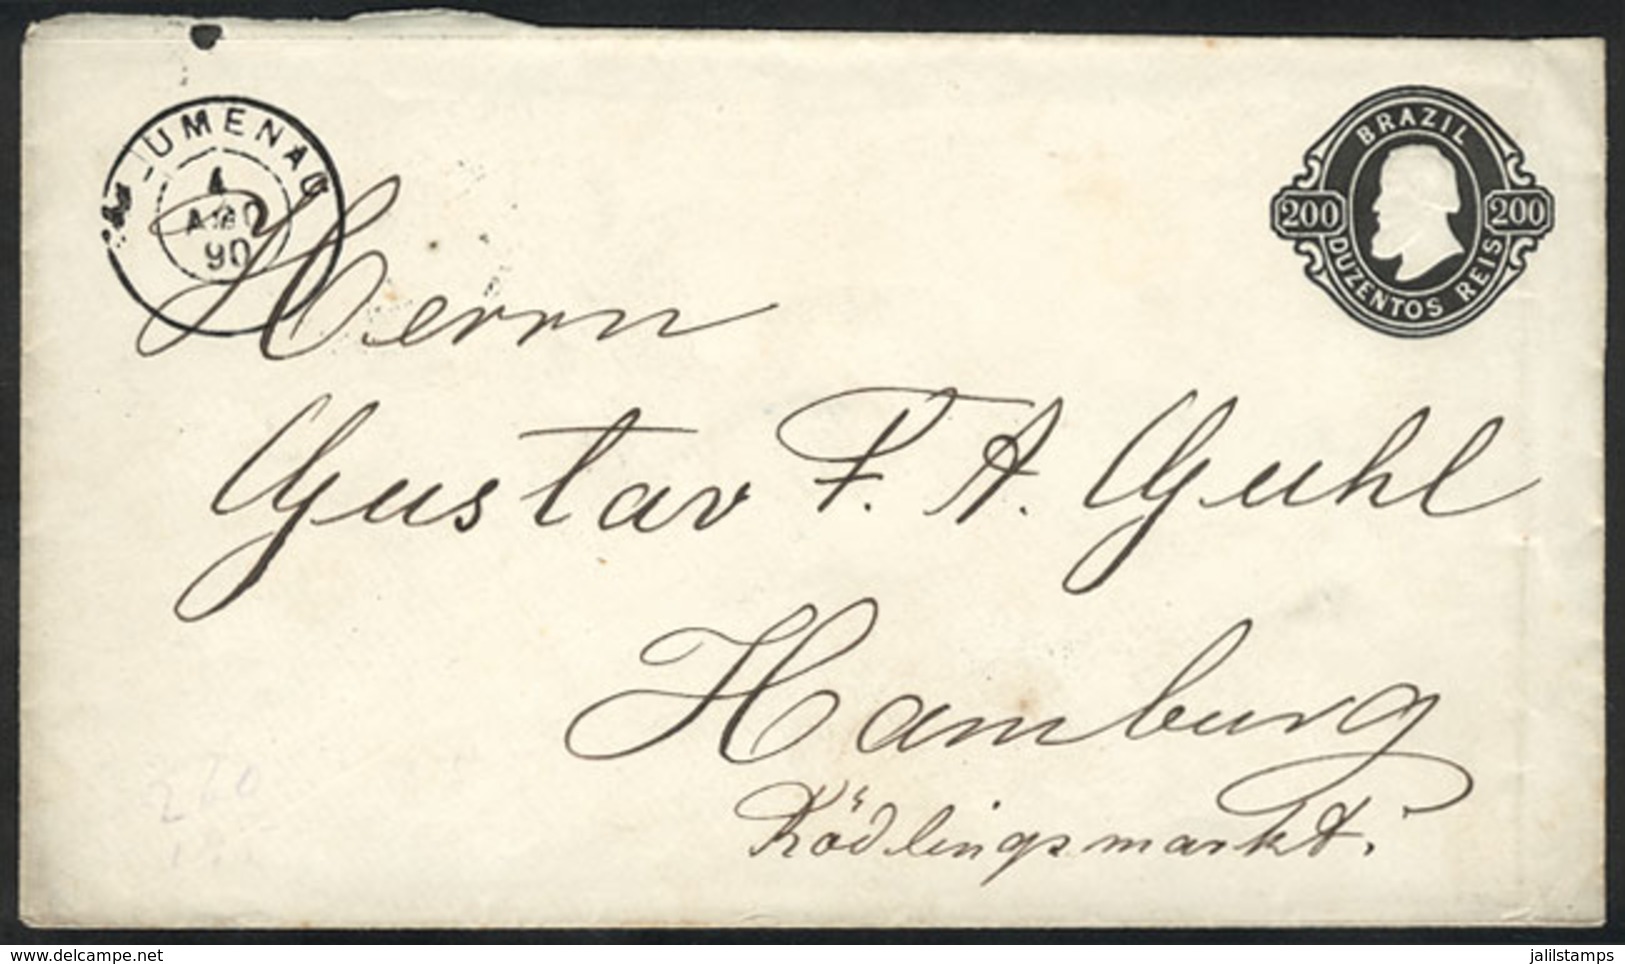 BLUMENAU
4
AGO
90
BRAZIL
200 200
DUZENTOS REIS
Herrn
Gustav F. A. Guhl
Hamburg
Rödlingsmarkt.
delcampe.net
jalilstamps